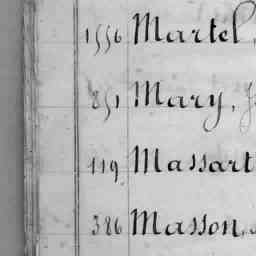 1556 Martel,
851 Mary, J
119 Massart
386 Masson,